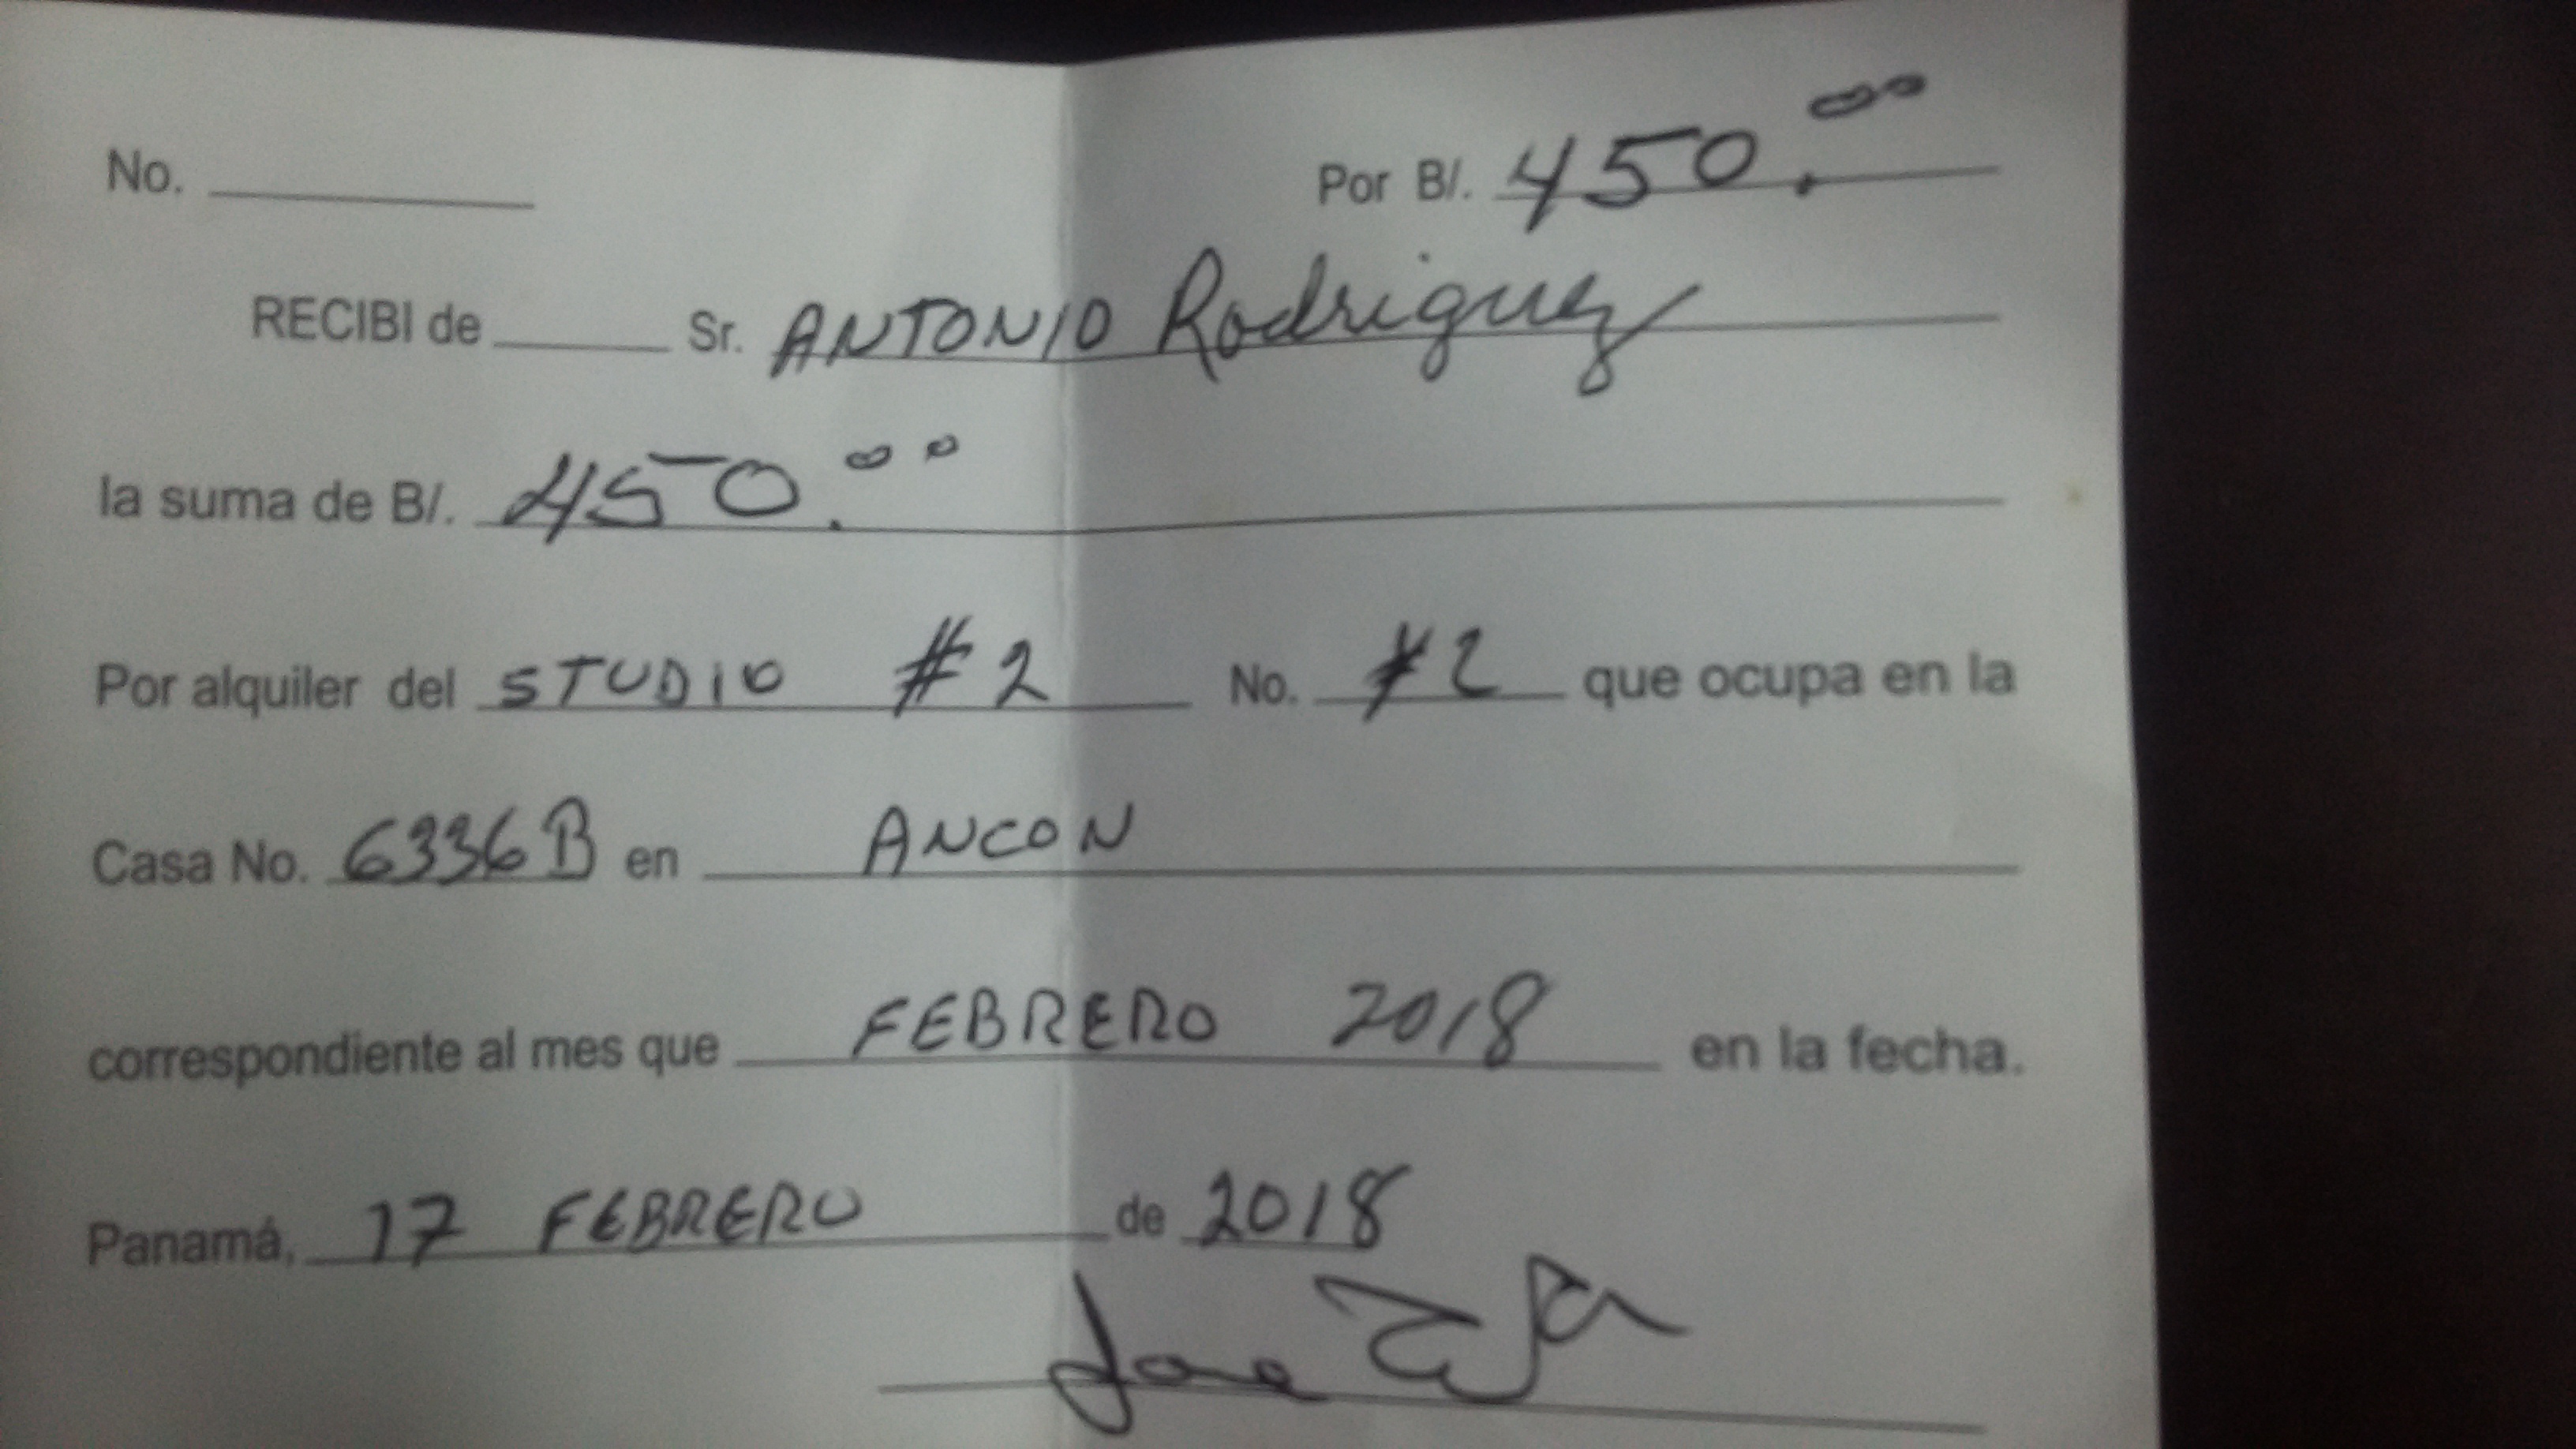 No. Por B/. 450.00
RECIBI de Sr. ANTONIO Rodriguez
la suma de B/. 450.00
Por alquiler del STUDIO #2 No. #2 que ocupa en la
Casa No. 6336B en ANCON
correspondiente al mes que FEBRERO 2018 en la fecha.
Panamá, 17 FEBRERO de 2018